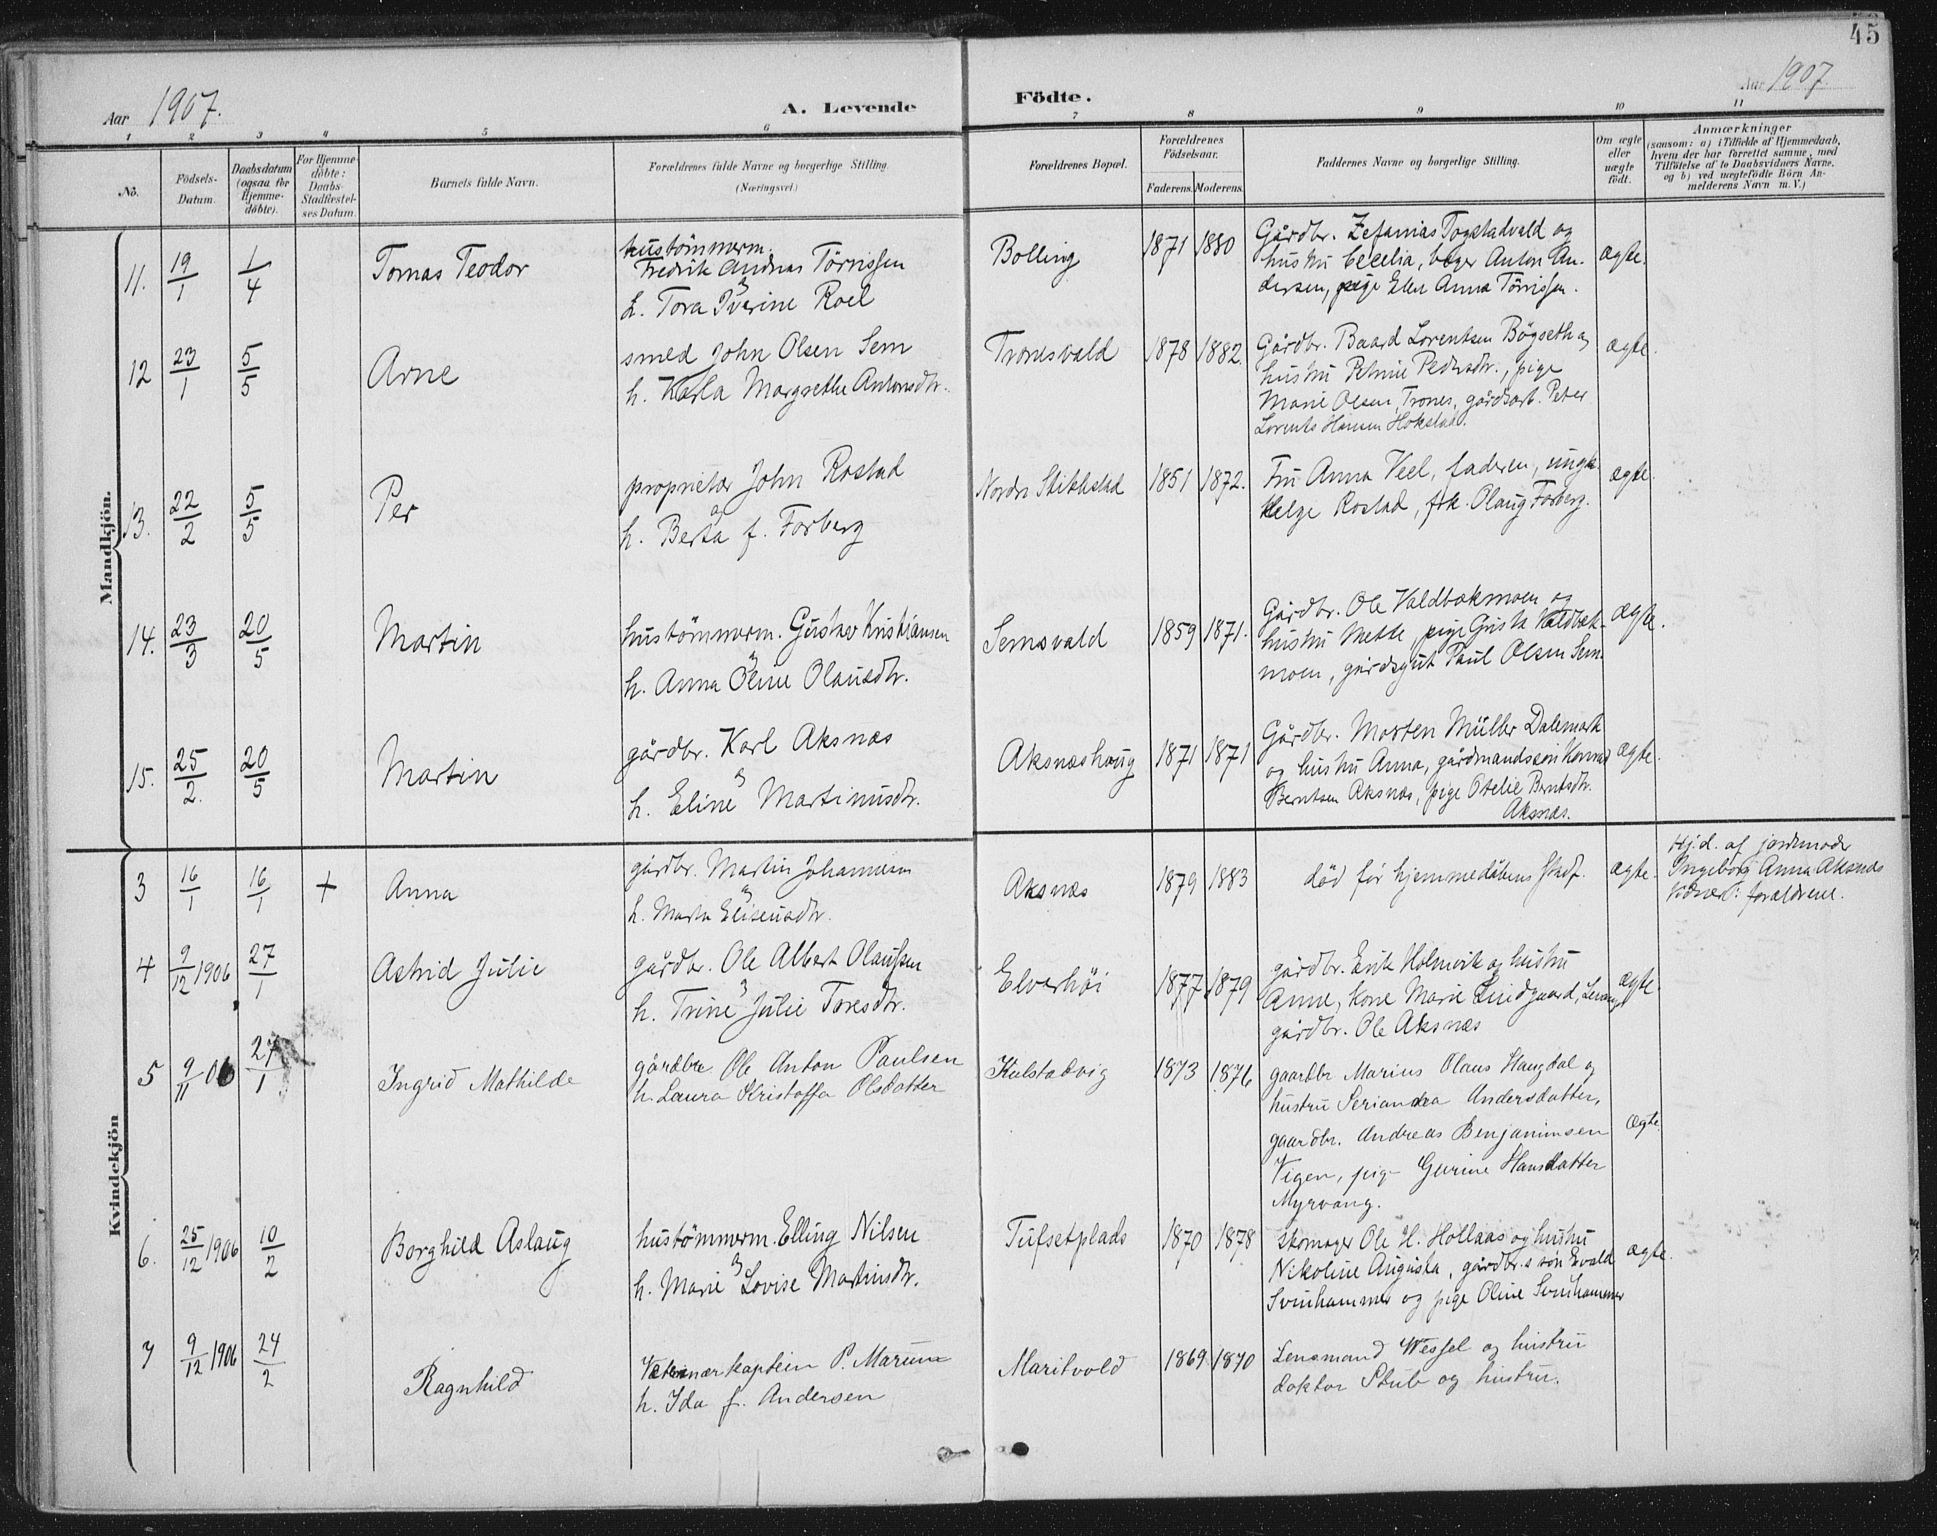 45
Aar 1907.
A. Levende
Födte.
Aar 1907.
1 2 3 4 5 6 7 8 9 10 11
No.
Födsels-
Datum.
Daabsdatum
(ogsaa for
Hjemme-
döbte).
For Hjemme-
döbte:
Daabs-
Stadfæstel-
ses Datum.
Barnets fulde Navn.
Forældrenes fulde Navne og borgerlige Stilling.
(Næringsvei.)
Forældrenes Bopæl.
Forældrenes
Födselsaar.
Faderens. Moderens.
Faddernes Navne og borgerlige Stilling.
Om ægte
eller
uægte
födt.
Anmærkninger
(saasom: a) i Tilfælde af Hjemmedaab,
hvem der har forrettet samme, med
Tilföielse af to Daabsvidners Navne.
og b) ved uægtefödte Börn An-
melderens Navn m. V.)
Mandkjön.
11. 19/1 1/4 Tomas Teodor
hustömmerm.
Fredrik Andreas Törrissen
og
h. Tora Iverine Roel
Bolling 1871 1880
Gårdbr. Zefanias Togstadvald og
hustru Cecelia, bager Anton An-
dersen, pige Elen Anna Törrissen.
ægte.
12 23/1 5/5 Arne
smed John Olsen Sem
h. Karla Margrethe Antonsdtr.
Tronesvald 1878 1882.
Gårdbr. Baard Lorentsen Bögseth og
hustru Petrine Pedersdtr., pige
Marie Olsen, Trones, gårdsarb. Peter
Lorents Hansen Hokstad.
ægte.
13. 22/2 5/5 Per
proprietær John Rostad
og
h. Berta f. Forberg
Nordre Stikkstad 1851 1872.
Fru Anna Veel, faderen, ungk.
Helge Rostad, frk. Olaug Forberg.
ægte.
14. 23/3 20/5 Martin
hustömmerm. Gustav Kristiansen
og
h. Anna Oline Olausdtr.
Semsvald 1859 1871.
Gårdbr. Ole Valdbækmoen og
hustru Mette, pige Valdbæk-
moen, gårdsgut Paul Olsen Sem.
ægte.
15. 25/2. 20/5 Martin
gårdbr. Karl Aksnæs
og
h. Eline Martinusdtr.
Aksnæshoug 1871 1871
Gårdbr. Morten Müller Dalemark
og hustru Anna, gårdmandssøn Konrad
Berntsen Aksnæs, pige Otelie Berntsdtr.
Aksnæs.
ægte.
Kvindekjön
3 16/1 16/1 + Anna
gårdbr. Martin Johannesen
og
h. Marta Eliseusdtr.
Aksnæs 1879 1883
död før hjemmedåbens stadf.
ægte.
Hj.d. af jordmoder
Ingeborg Anna Aksnæs
forældrene.
4 9/12 1906 27/1 Astrid Julie
gårdbr. Ole Albert Olaussen
og
h. Trine Julie Toresdtr.
Elverhöi 1877 1879
gårdbr. Erik Holmvik og hustru
Anne, kone Marie Lundgaard, Levanger
gårdbr. Ole Aksnæs
ægte.
5 9/11 06 27/1 Ingrid Mathilde
gårdbr Ole Anton Paulsen
h. Laura Kristoffa Olsdatter
Kulstadvig 1873 1876
gaardbr Marius Olaus Haugdal og
hustru Serianna Andersdatter,
gaardbr. Andreas Benjaminsen
Vigen, pige Gurine Hansdatter
Myrvang.
ægte.
6. 25/12 1906 10/2 Borghild Aslaug
hustömmerm. Elling Nilsen
og
h. Marie Lovise Martinsdtr.
Tufsetplads 1870 1878
Skomager Ole H. Hollaas og hustru
Nikoline Augusta, gårdbr.s sön Evald
Svinhammer og pige Oline Svinhammer
ægte.
7 9/12 1906 24/2 Ragnhild
Veterinærkaptein P.
h. Ida f. Andersen
Maritvold 1869 1870
Lensmand Wessel og hustru
doktor Stub og hustru.